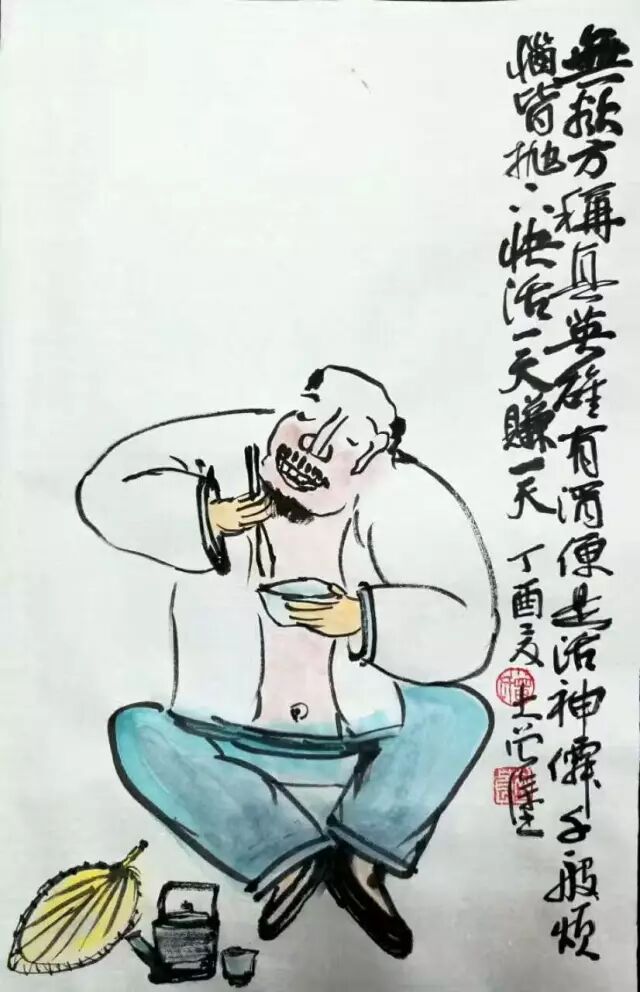 無欲方稱真英雄有酒便是活神僊千般煩
惱皆抛八快活一天賺一天 丁酉夏